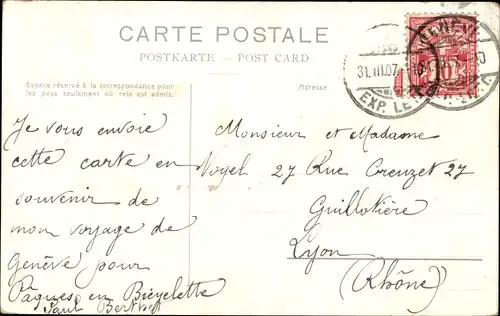 CARTE POSTALE
POSTKARTE – POST CARD
Espace réservé à la correspondance pour
les pays seulement où cela est admis.
Adresse
31.III.07.
EXP. LE
10
Je vous envoie
cette carte en
souvenir de
mon voyage de
Genève pour
Pâques en Bicyclette
Paul
Monsieur et Madame
Vogel 27 Rue Creuzet 27
Guillotière
Lyon
(Rhône)